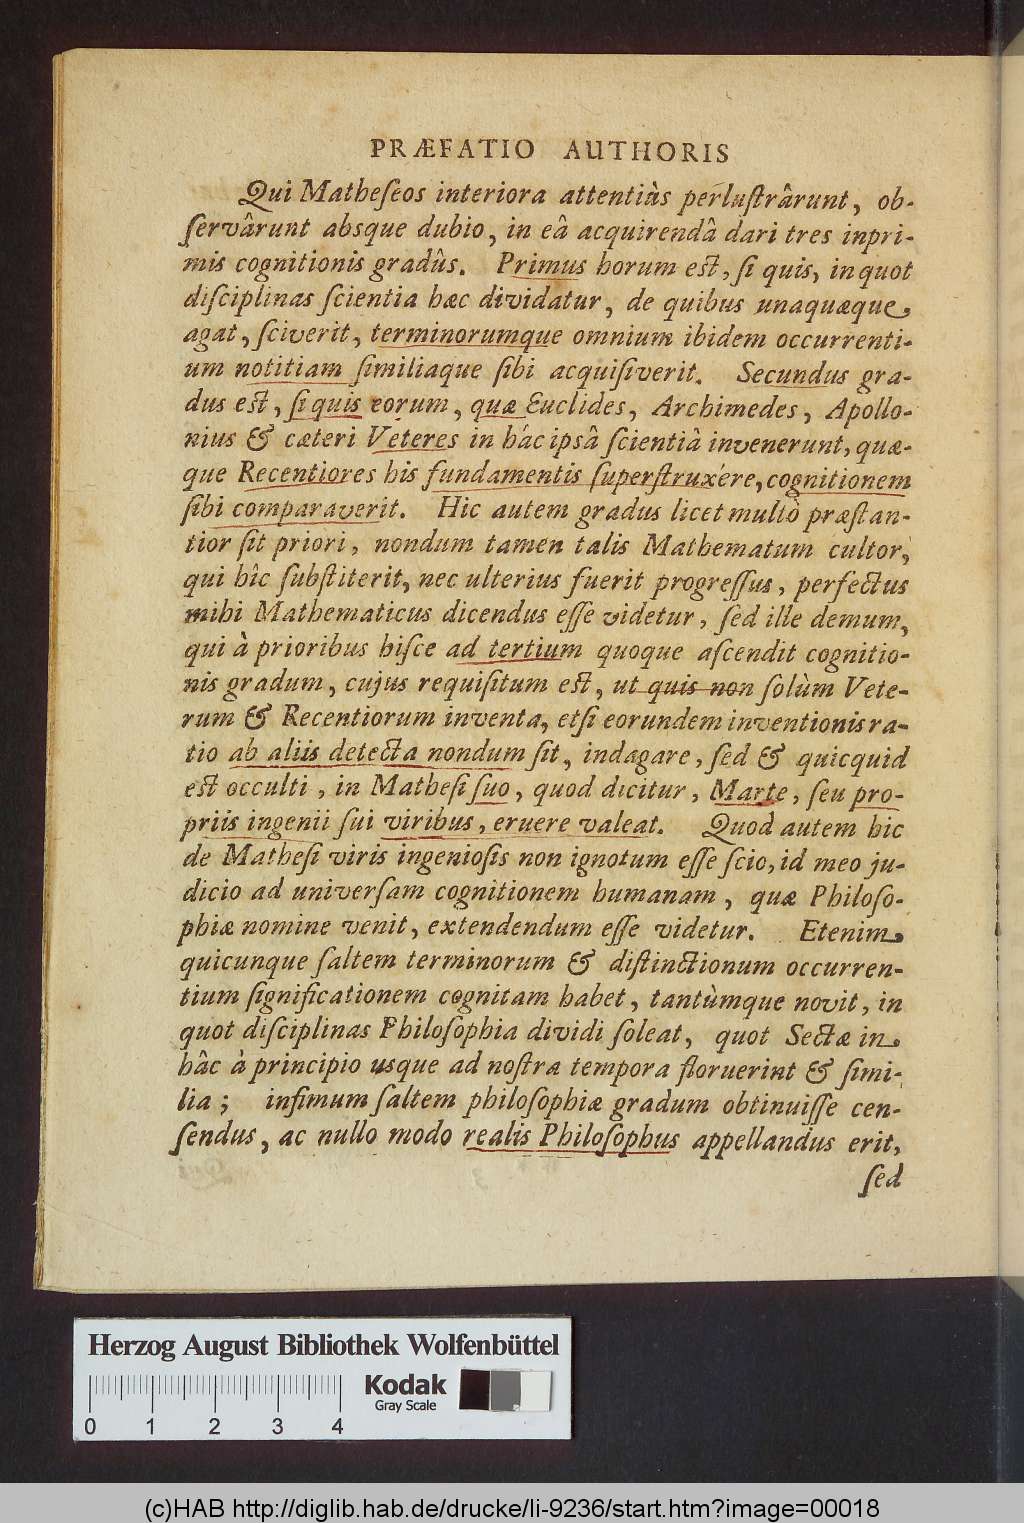 PRÆFATIO AUTHORIS
Qui Matheſeos interiora attentiùs perluſtrârunt, ob-
ſervârunt absque dubio, in eâ acquirendâ dari tres inpri-
mis cognitionis gradûs. Primus horum est, ſi quis, in quot
diſciplinas ſcientia hæc dividatur, de quibus unaquæque
agat, ſciverit, terminorumque omnium ibidem occurrenti-
um notitiam ſimiliaque ſibi acquiſiverit. Secundus gra-
dus eſt, ſi quis eorum, quæ Euclides, Archimedes, Apollo-
nius & cæteri Veteres in hâc ipsâ ſcientiâ invenerunt, quæ-
que Recentiores his fundamentis ſuperſtruxére, cognitionem
ſibi comparaverit. Hic autem gradus licet multò præſtan-
tior ſit priori, nondum tamen talis Mathematum cultor,
qui hîc ſubſtiterit, nec ulterius fuerit progreſſus, perfectus
mihi Mathematicus dicendus eſſe videtur, ſed ille demum,
qui à prioribus hiſce ad tertium quoque aſcendit cognitio-
nis gradum, cujus requiſitum eſt, ut quis non ſolùm Vete-
rum & Recentiorum inventa, etſi eorundem inventionis ra-
tio ab aliis detecta nondum ſit, indagare, ſed & quicquid
eſt occulti, in Matheſi ſuo, quod dicitur, Marte, ſeu pro-
priis ingenii ſui viribus, eruere valeat. Quod autem hic
de Matheſi viris ingenioſis non ignotum eſſe ſcio, id meo ju-
dicio ad univerſam cognitionem humanam, quæ Philoſo-
phiæ nomine venit, extendendum eſſe videtur. Etenim
quicunque ſaltem terminorum & diſtinctionum occurren-
tium ſignificationem cognitam habet, tantùmque novit, in
quot diſciplinas Philoſophia dividi ſoleat, quot Sectæ in
hâc à principio usque ad noſtra tempora floruerint & ſimi-
lia; infimum ſaltem philoſophiæ gradum obtinuiſſe cen-
ſendus, ac nullo modo realis Philoſophus appellandus erit,
ſed
Herzog August Bibliothek Wolfenbüttel
Kodak
Gray Scale
0 1 2 3 4
(c)HAB http://diglib.hab.de/drucke/li-9236/start.htm?image=00018